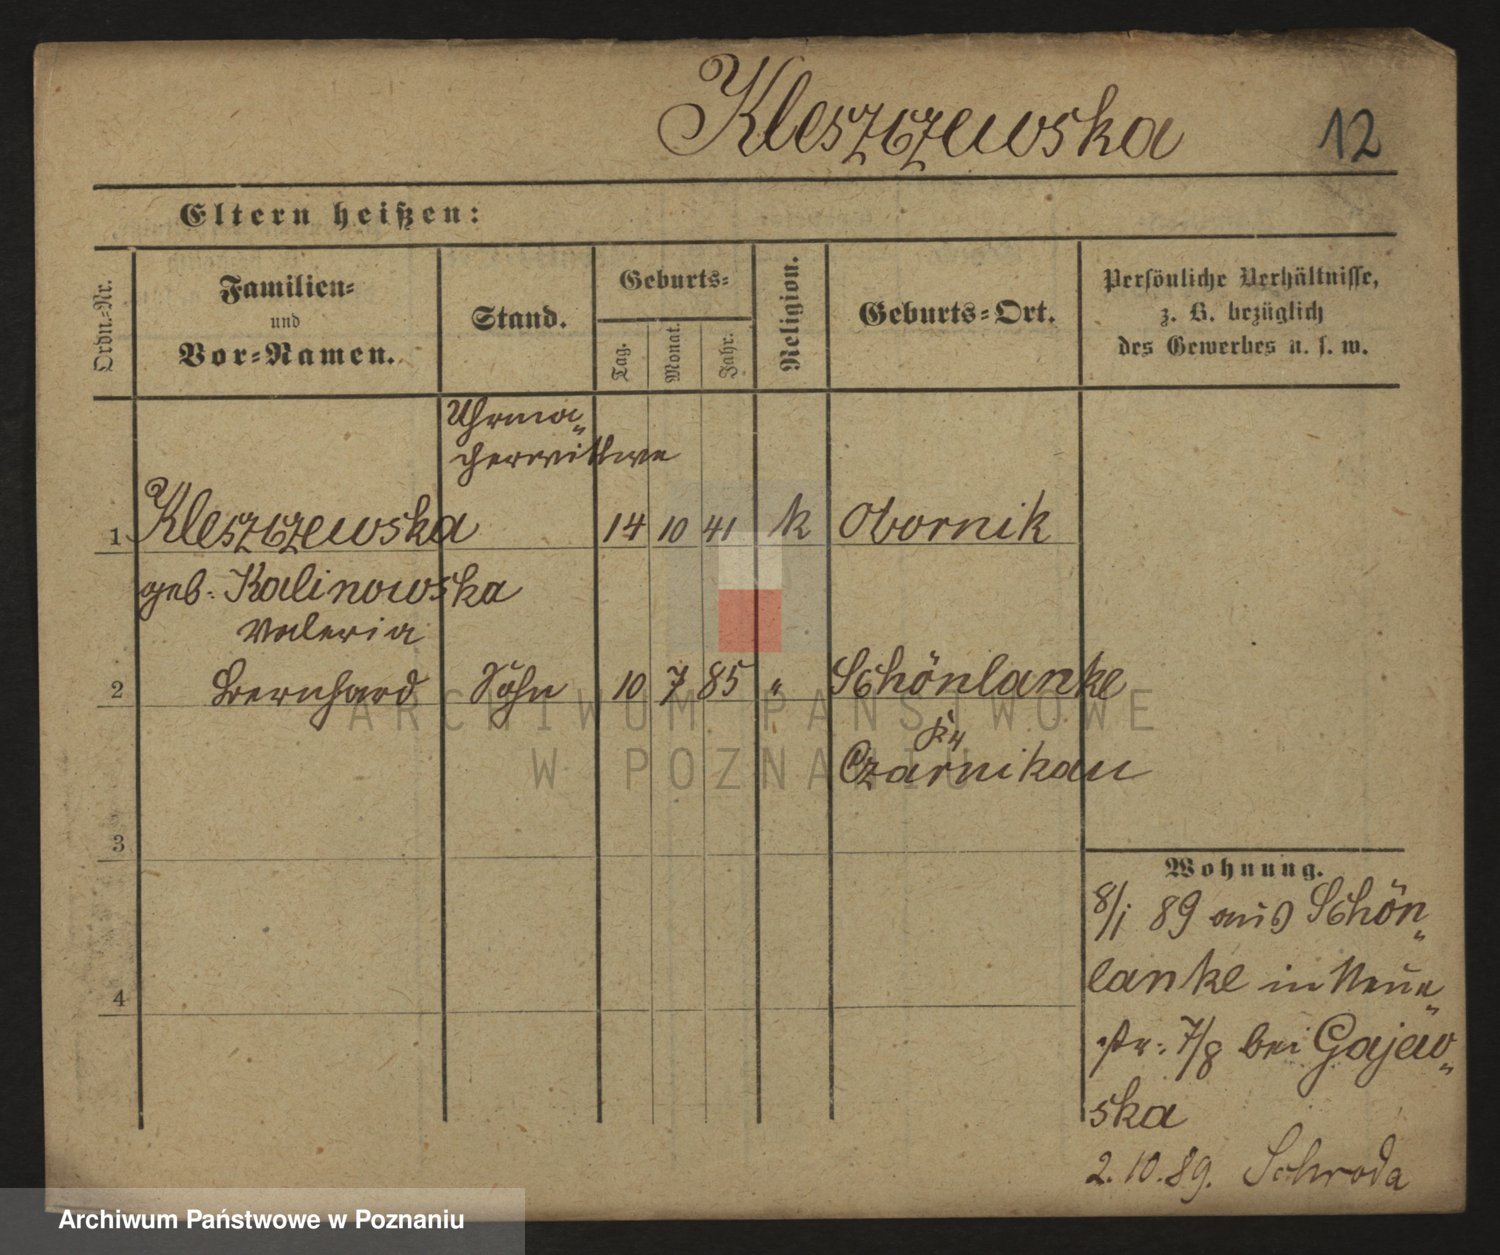 Kleszczewska 12
Eltern heißen:
Ordn.-Nr.
Familien-
und
Vor-Namen.
Stand.
Geburts-
Tag.
Monat.
Jahr.
Religion.
Geburts-Ort.
Persönliche Verhältnisse,
z. B. bezüglich
des Gewerbes u. s. w.
Uhrma-
cherwittwe
1 Kleszczewska 14 10 41 k Obornik
geb. Kalinowska
Valeria
2 Bernhard Sohn 10 7 85 " Schönlanke
Kr
Czarnikau
3
4
Wohnung.
8/1 89 aus Schön-
lanke in Neue-
str. 7/8 bei Gajew-
ska
2.10.89. Schroda
ARCHIWUM PAŃSTWOWE
W POZNANIU
Archiwum Państwowe w Poznaniu